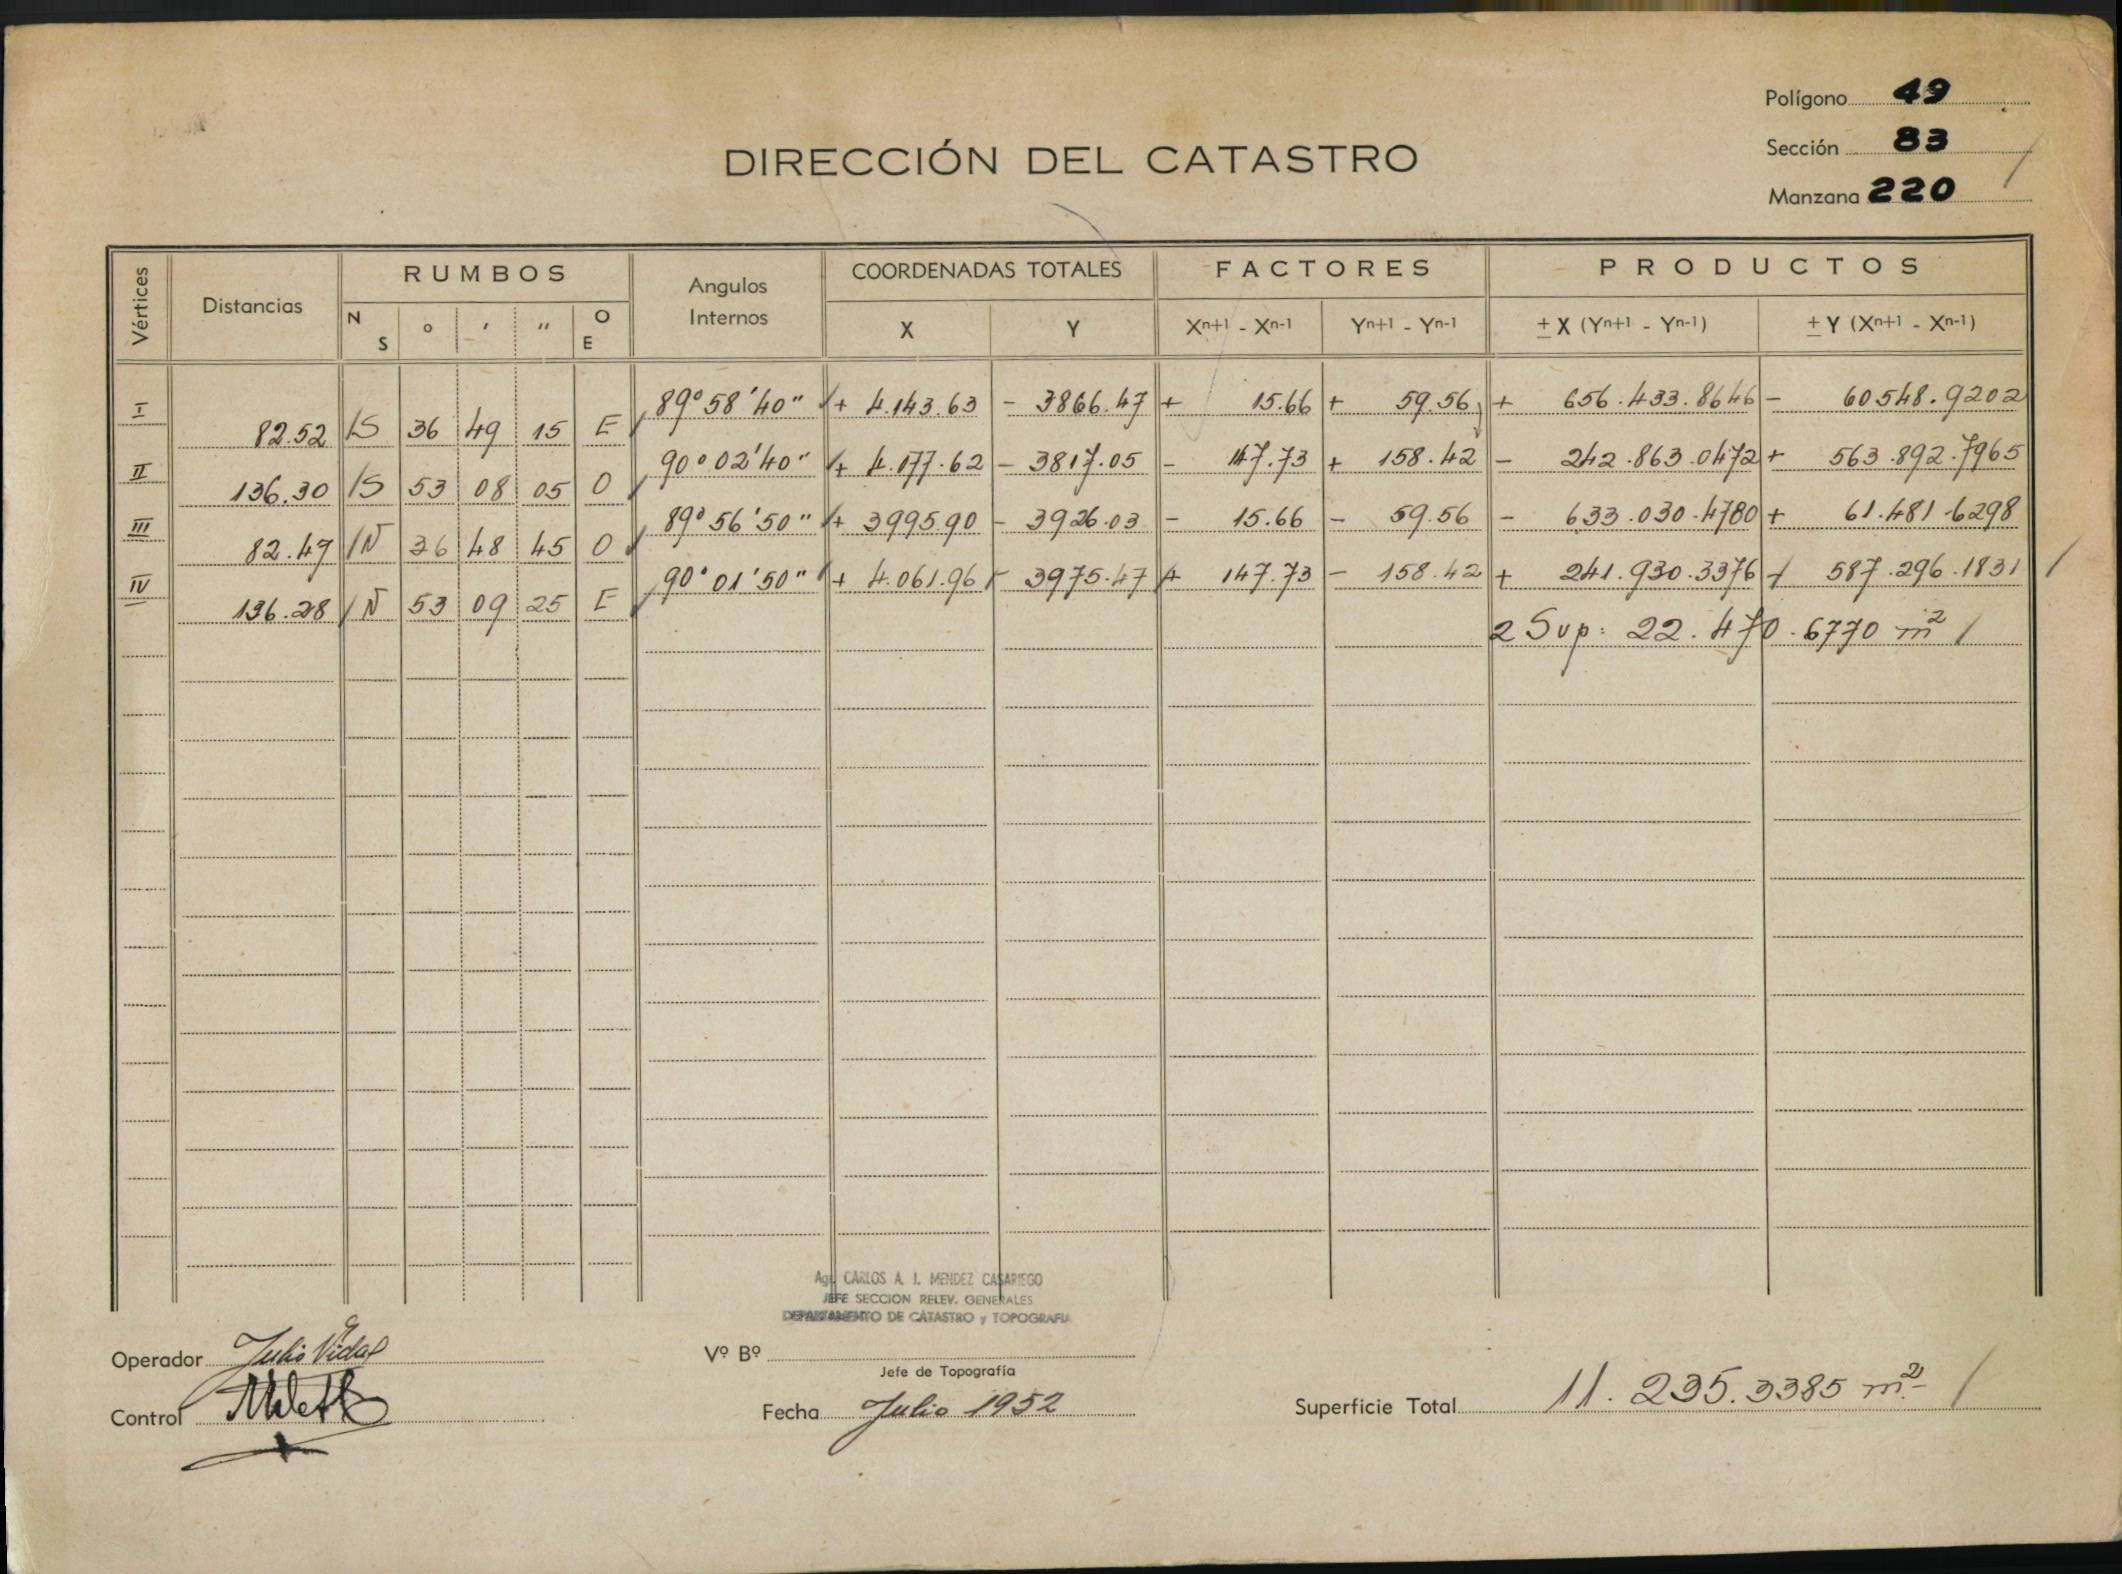 Polígono 49
Sección 83
Manzana 220
DIRECCIÓN DEL CATASTRO
Vértices Distancias RUMBOS Angulos Internos COORDENADAS TOTALES FACTORES PRODUCTOS
N S º ' " O E X Y Xn+1 - Xn-1 Yn+1 - Yn-1 ± X (Yn+1 - Yn-1) ± Y (Xn+1 - Xn-1)
I 82.52 S 36 49 15 E 89º58'40" + 4.143.63 - 3866.47 + 15.66 + 59.56 + 656.433.8646 - 60548.9202
II 136.30 S 53 08 05 O 90º02'40" + 4.177.62 - 3817.05 - 147.73 + 158.42 - 242.863.0472 + 563.892.7965
III 82.49 N 36 48 45 O 89º56'50" + 3995.90 - 3926.03 - 15.66 - 59.56 - 633.030.4780 + 61.481.6298
IV 136.28 N 53 09 25 E 90º01'50" + 4.061.96 - 3975.47 + 147.73 - 158.42 + 241.930.3376 - 587.296.1831
2 Sup: 22.470.6770 m²
Agr. CARLOS A. I. MENDEZ CASARIEGO
JEFE SECCION RELEV. GENERALES
DEPARTAMENTO DE CATASTRO y TOPOGRAFIA
Operador Julio Vidal
Vº Bº
Jefe de Topografía
Control
Fecha Julio 1952
Superficie Total 11.235.3385 m²